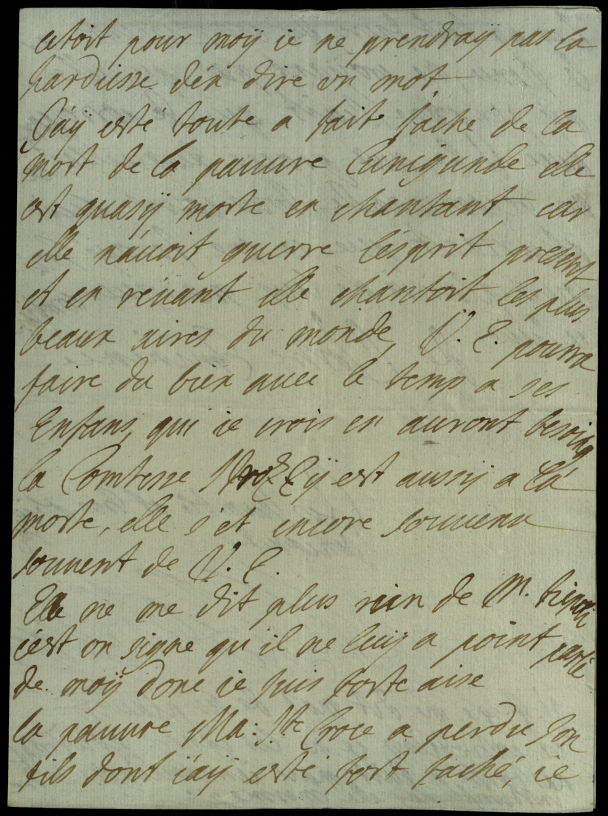 estoit pour moÿ ie ne prendraÿ pas la
hardiesse d'en dire un mot
J'aÿ esté toute a fait faché de la
mort de la pauure Cunigunde elle
est quasÿ morte en chantant, car
elle n'auoit guerre l'esprit present
et en reuant elle chantoit les plus
beaux aires du monde, V. E. pourra
faire du bien auec le temps a ses
Enfans, qui ie crois en auront besoing
la Comtesse est aussÿ a la
morte, elle s'et encore souuenu
souuent de V. E.
Elle ne me dit plus rien de M.
c'est un signe qu'il ne luy a point parlé
de moÿ donc ie suis forte aise
la pauure Ma: Ste Croce a perdu son
fils dont iaÿ esté fort faché, ie